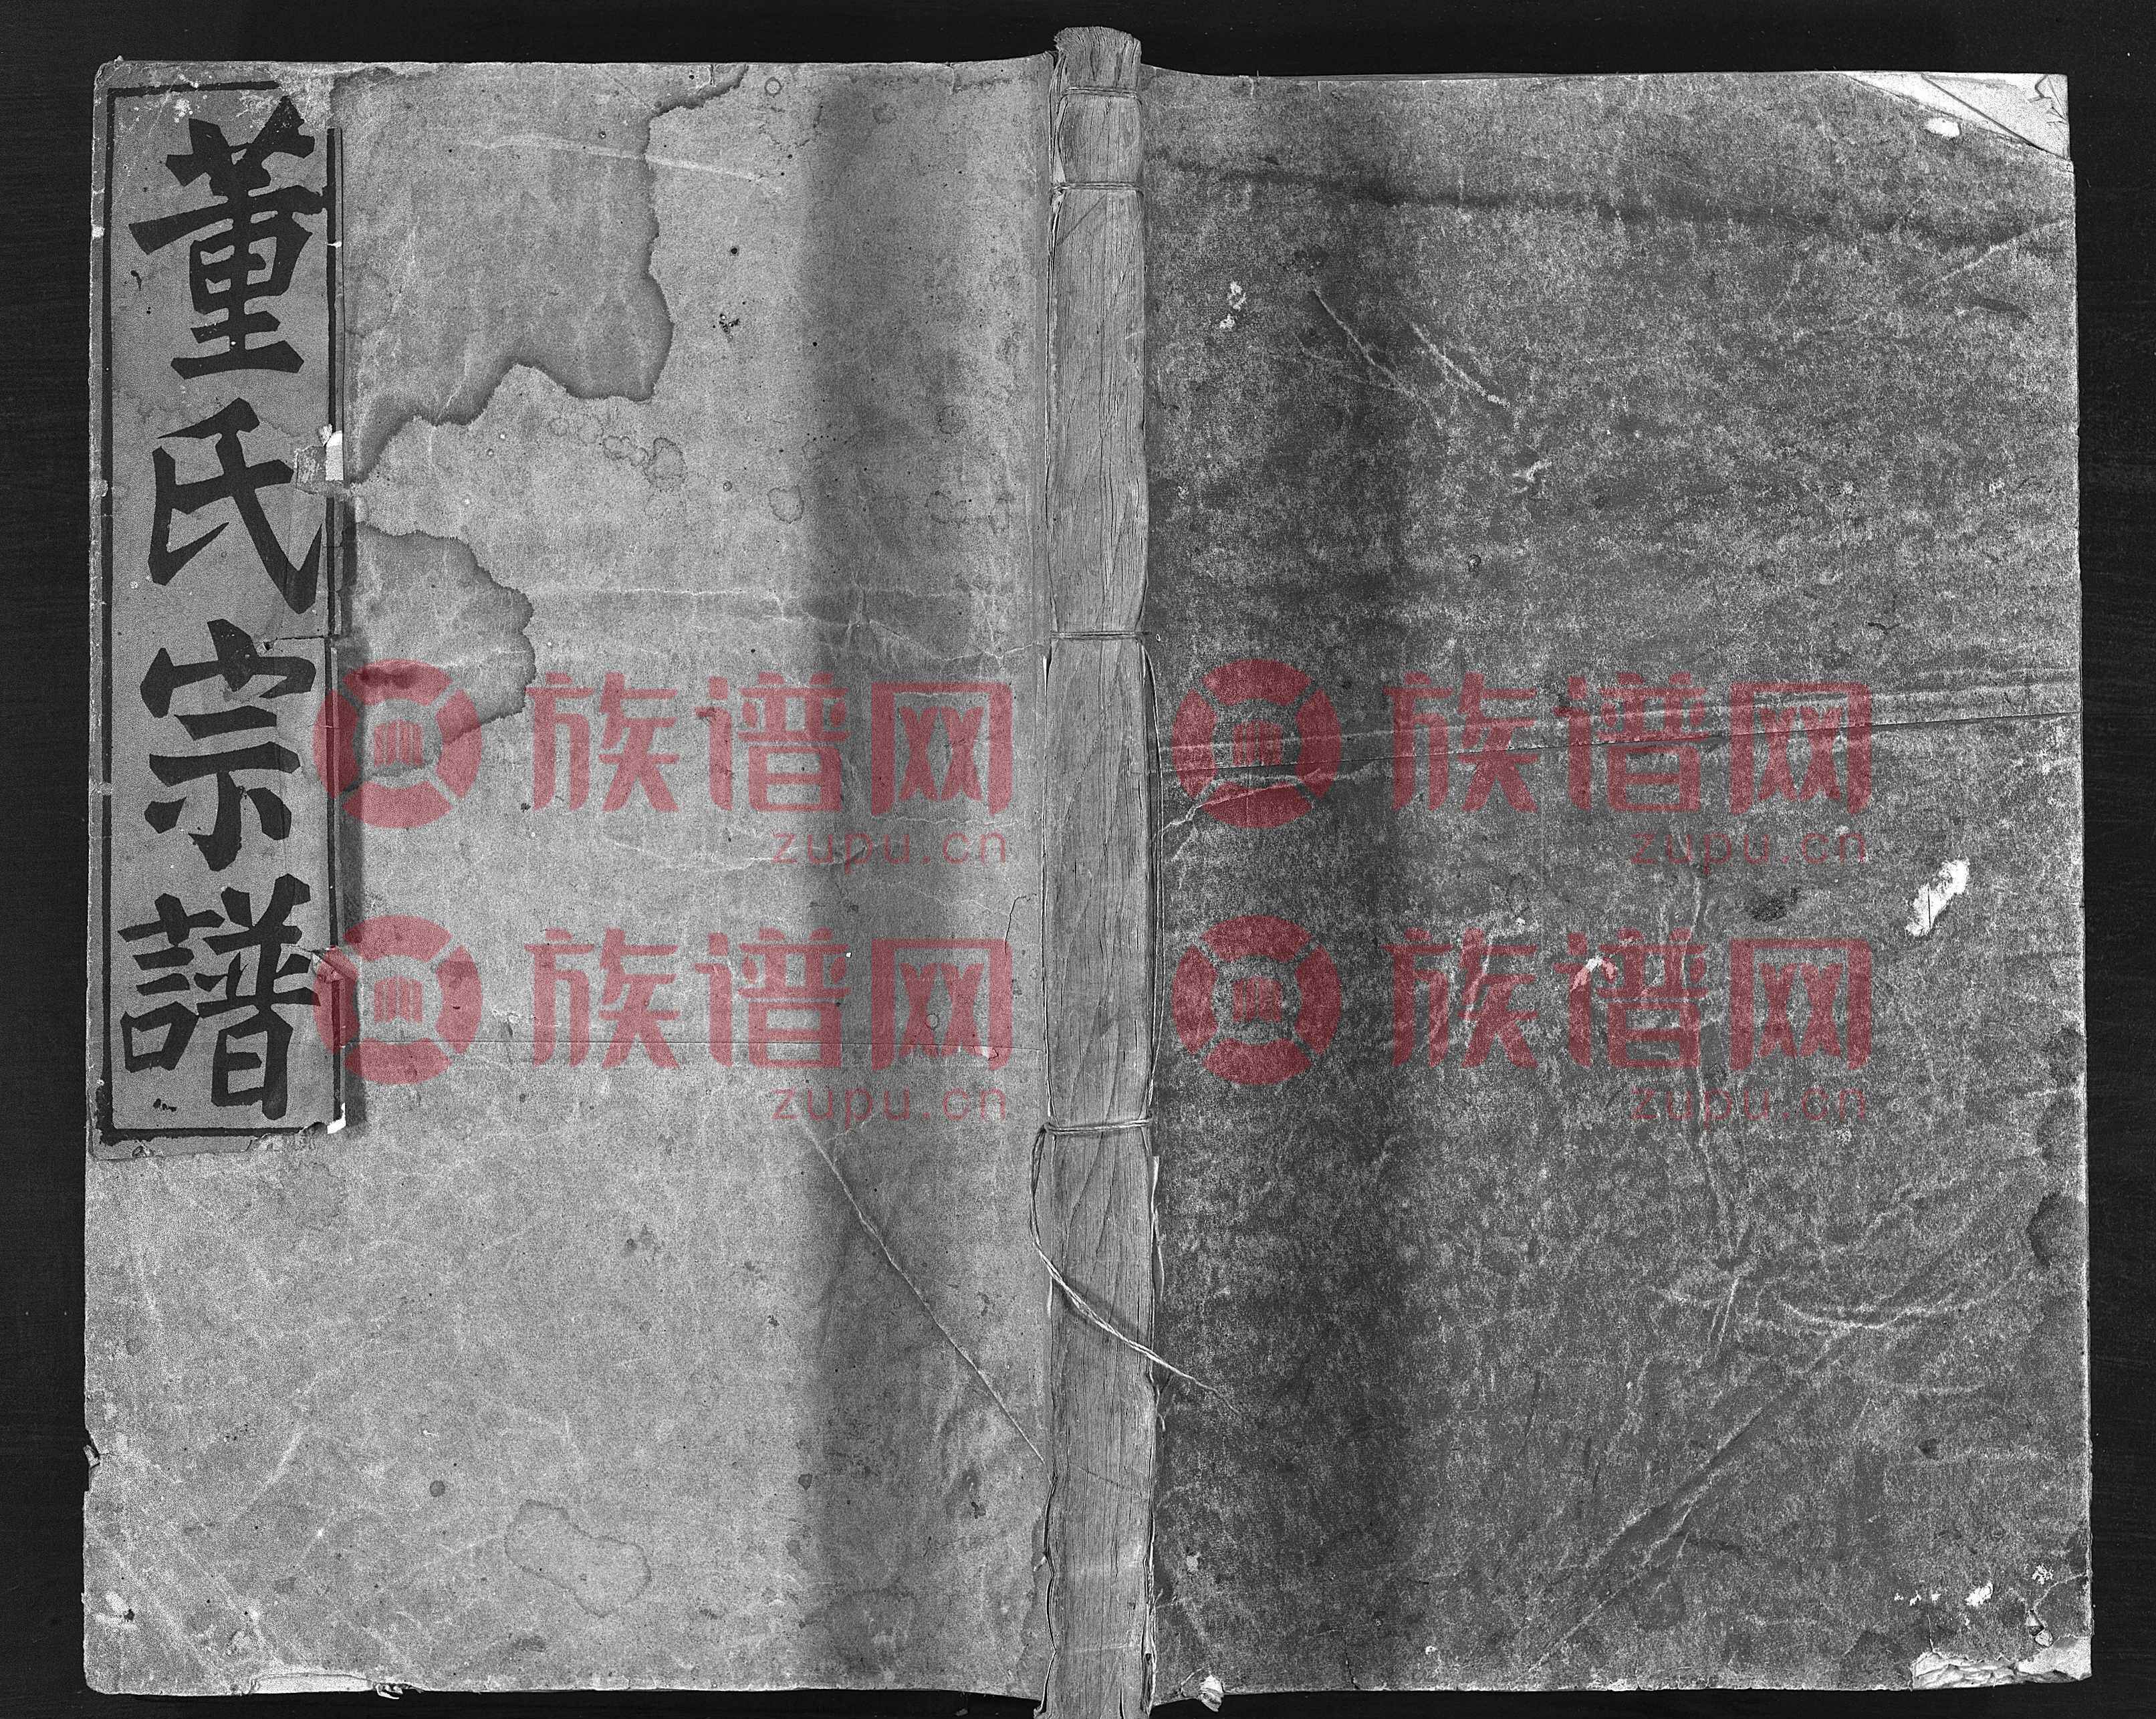 董氏宗譜
族谱网 族谱网
zupu.cn zupu.cn
族谱网 族谱网
zupu.cn zupu.cn